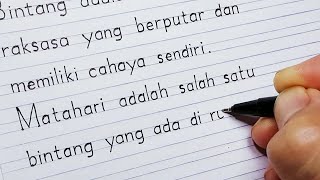 Bintang adala
raksasa yang berputar dan
memiliki cahaya sendiri.
Matahari adalah salah satu
bintang yang ada di ru